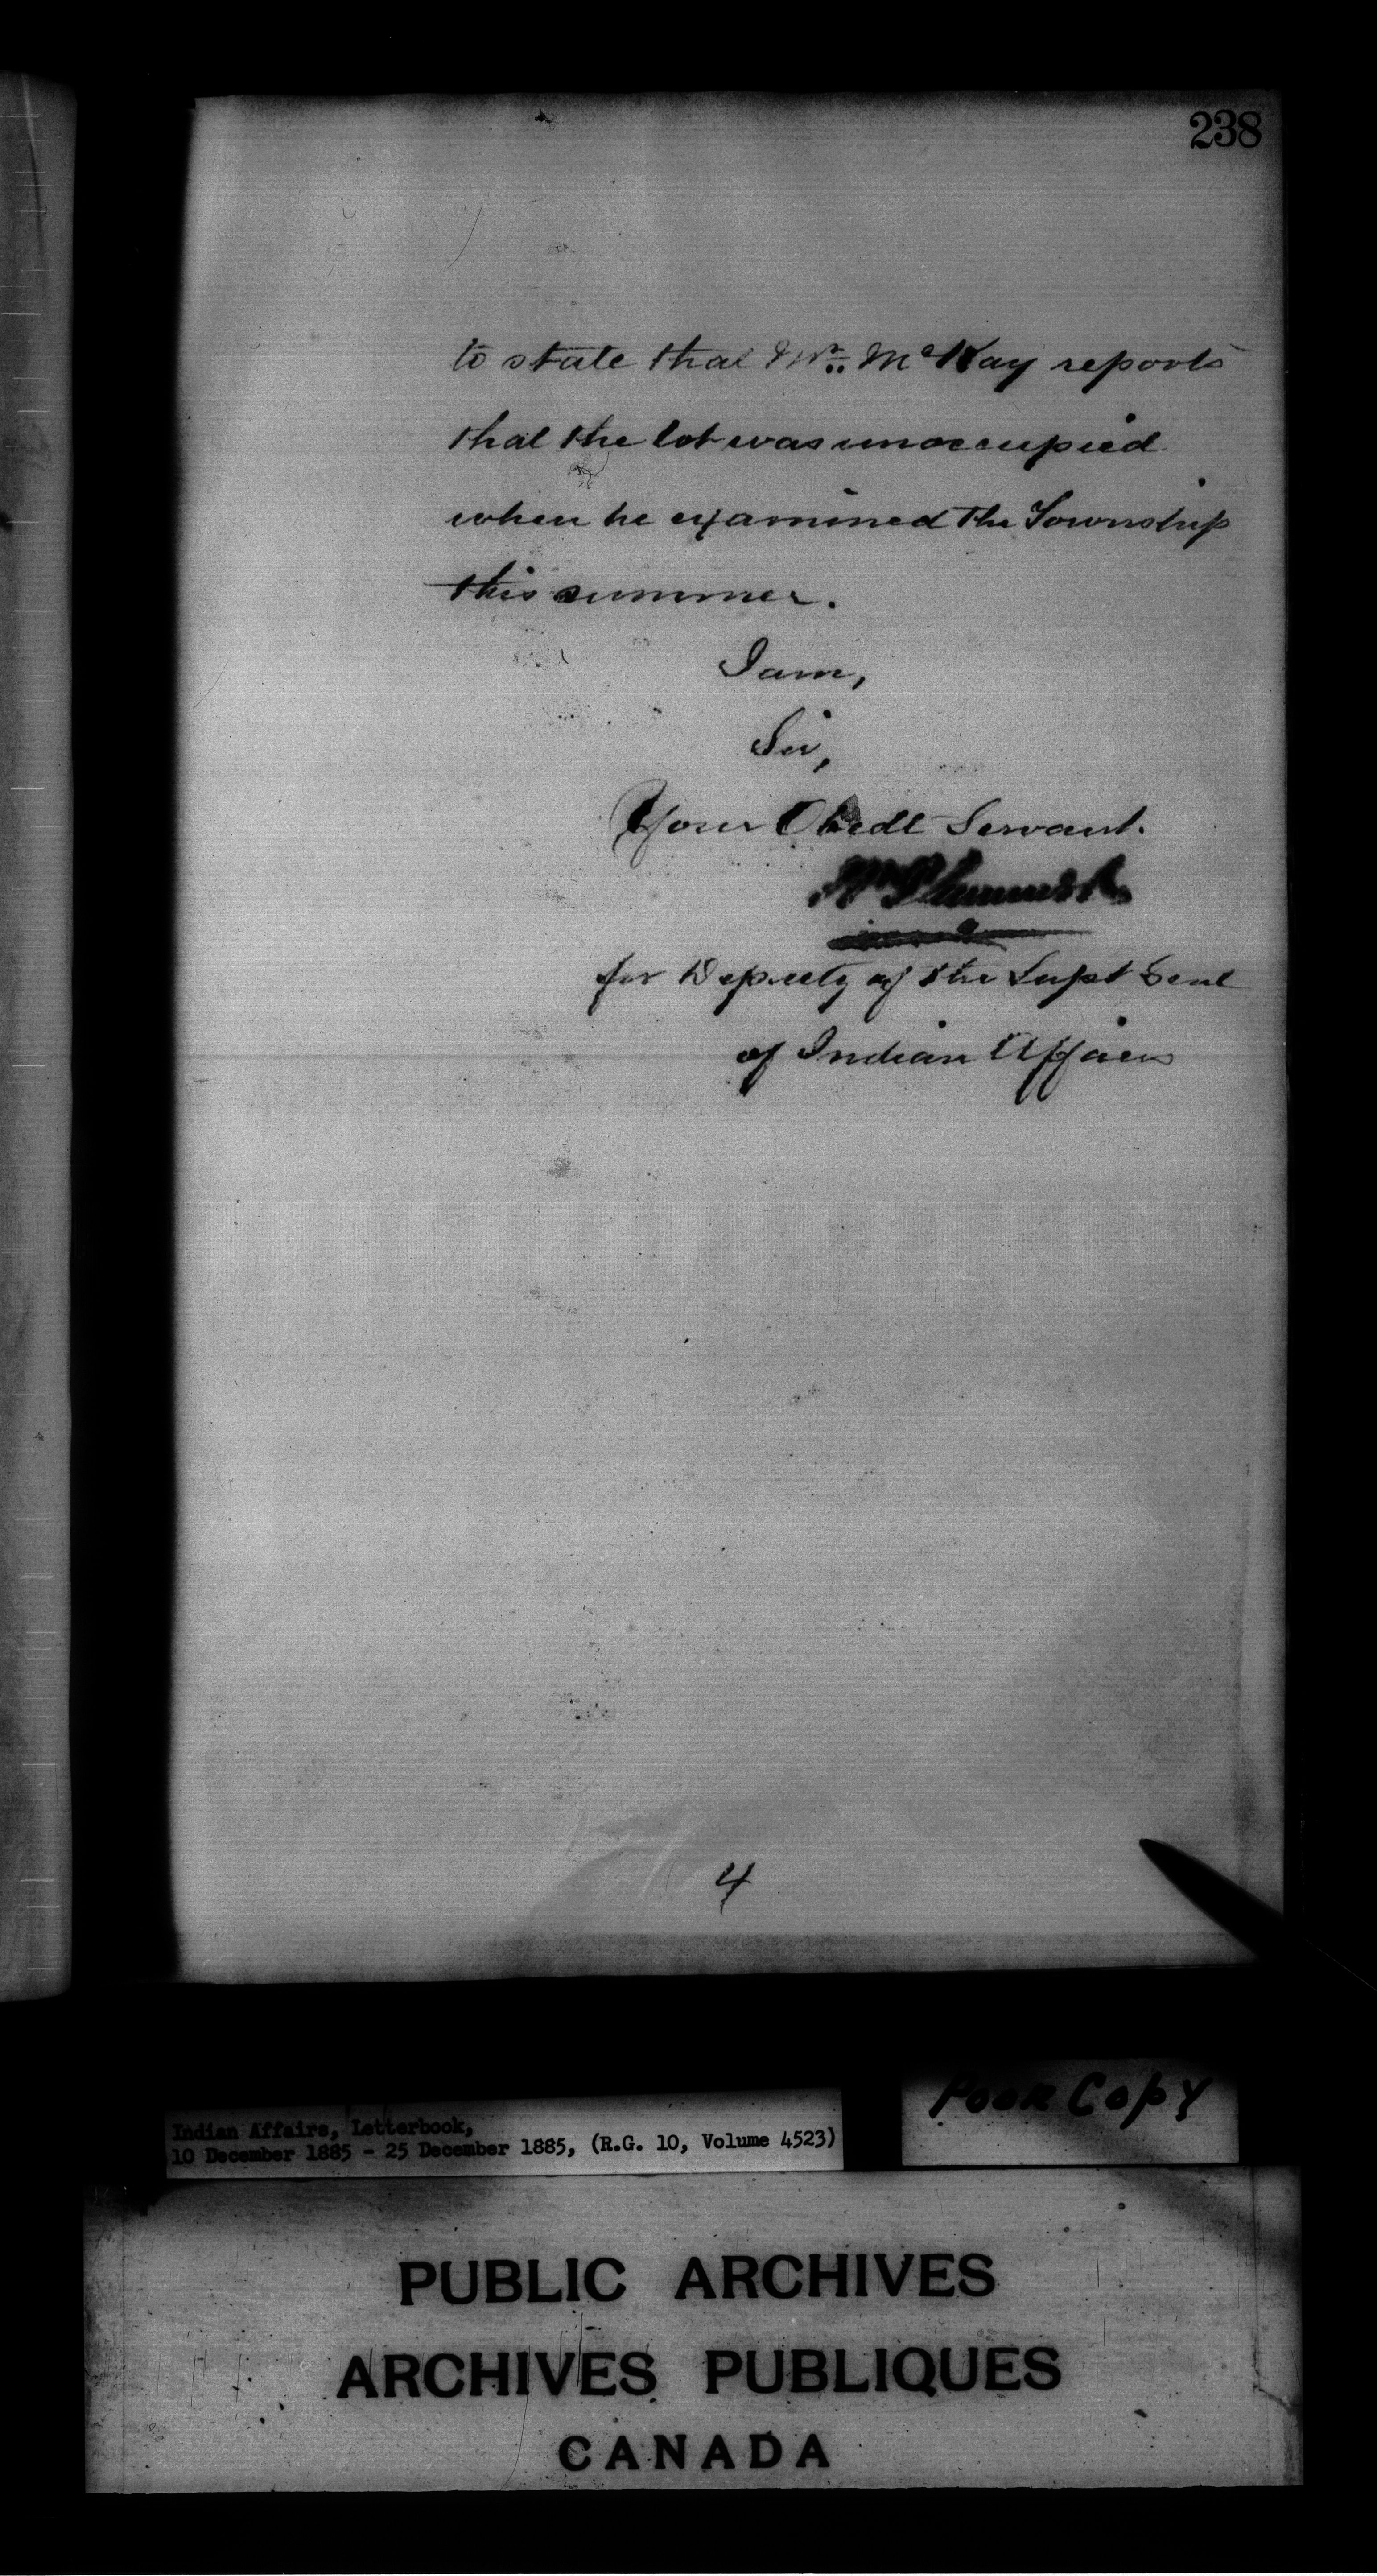 238
to state that Mr. McKay reports
that the lot was unoccupied
when he examined the Township
this summer.
I am,
Sir,
Your Obedt Servant.
for Deputy of the Supt Genl
of Indian Affairs
4
Poor Copy
Indian Affairs, Letterbook,
10 December 1885 - 25 December 1885, (R.G. 10, Volume 4523)
PUBLIC ARCHIVES
ARCHIVES PUBLIQUES
CANADA